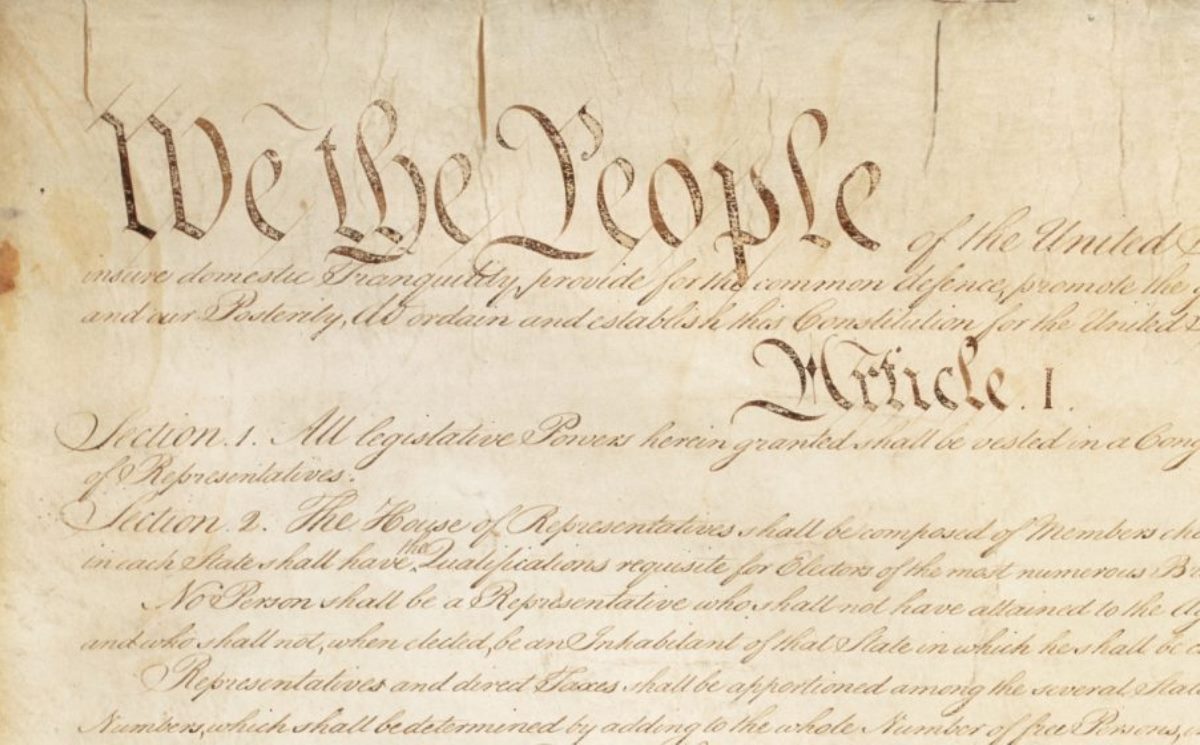 We the People of the United
insure domestic Tranquility, provide for the common defence, promote the
and our Posterity, do ordain and establish this Constitution for the United
Article. I.
Section. 1. All legislative Powers herein granted shall be vested in a Cong
of Representatives.
Section. 2. The House of Representatives shall be composed of Members cho
in each State shall have the Qualifications requisite for Electors of the most numerous Br
No Person shall be a Representative who shall not have attained to the Ag
and who shall not, when elected, be an Inhabitant of that State in which he shall be c
Representatives and direct Taxes shall be apportioned among the several Stat
Numbers, which shall be determined by adding to the whole Number of free Persons,